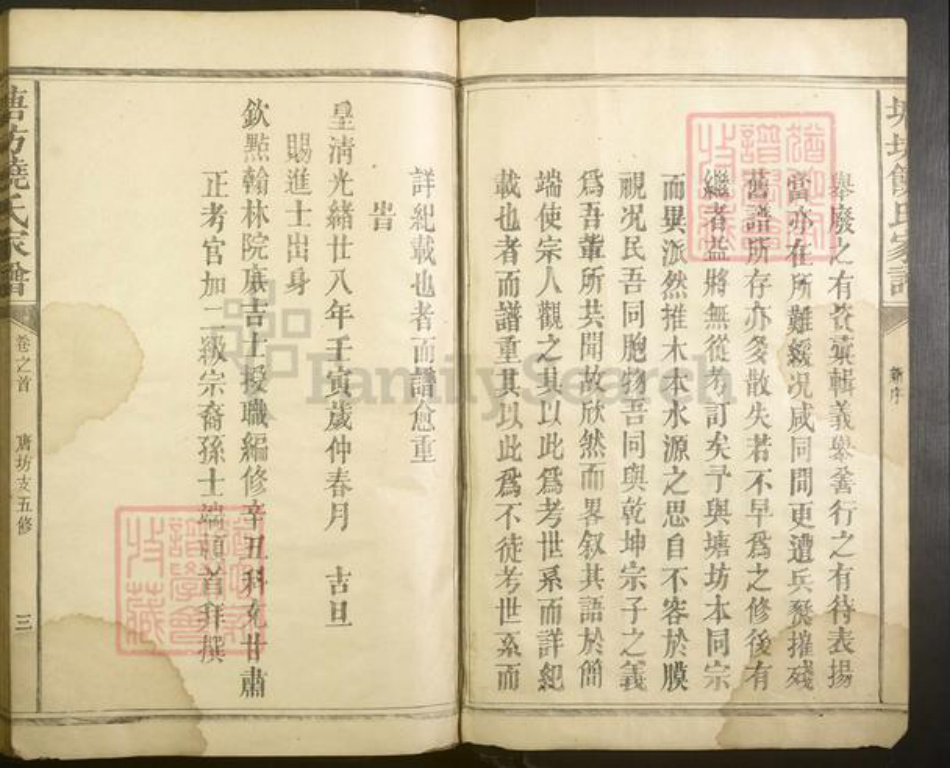 塘坊饒氏家譜
新序
舉廢之有資彙輯義舉善行之有待表揚
當亦在所難緩況咸同間更遭兵燹摧殘
舊譜所存亦多散失若不早為之修後有
繼者益將無從考訂矣予與塘坊本同宗
而異派然推木本水源之思自不容於膜
視況民吾同胞物吾同與乾坤宗子之義
為吾輩所共聞故欣然而畧叙其語於簡
端使宗人觀之其以此為考世系而詳紀
載也者而譜重其以此為不徒考世系而
詳紀載也者而譜愈重
旹
皇清光緒廿八年壬寅歲仲春月 吉旦
賜進士出身
欽點翰林院庶吉士授職編修辛丑科充甘肅
正考官加二級宗裔孫士端頓首拜撰
塘坊饒氏家譜
卷之首
唐坊支五修
三
FamilySearch